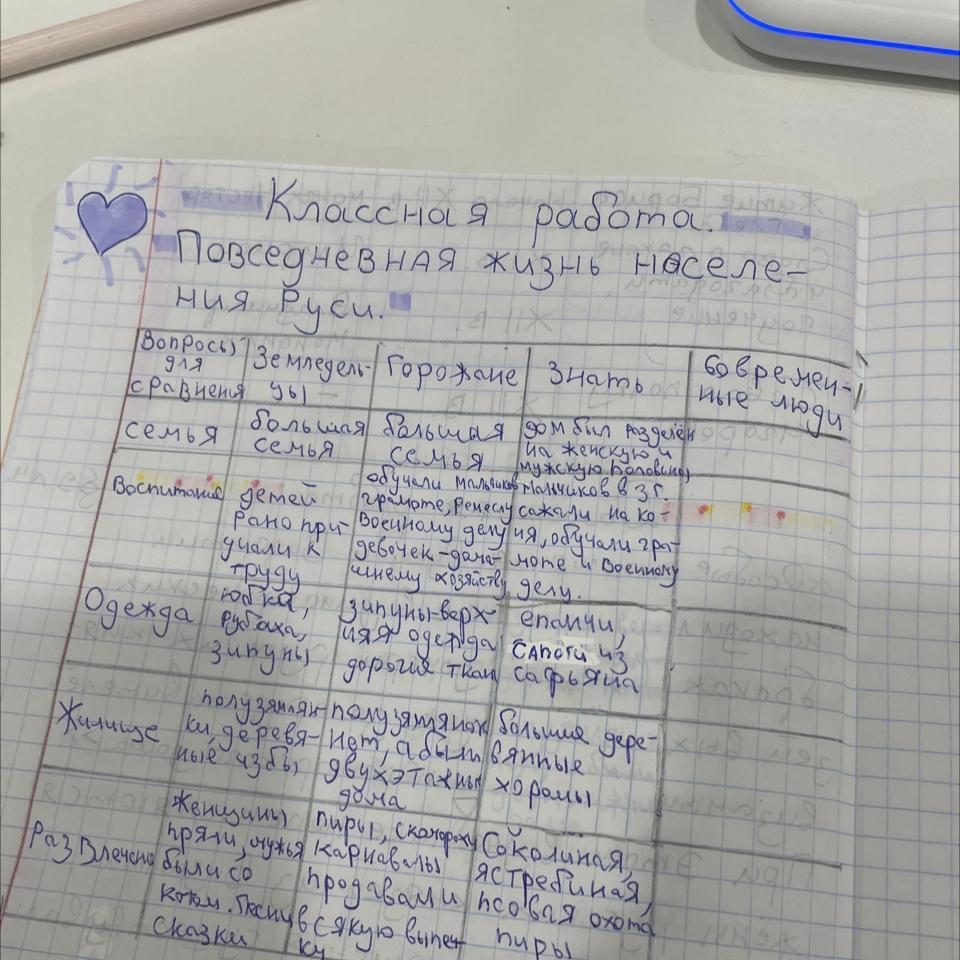 Классная работа.
Повседневная жизнь населе-
ния Руси.
Вопросы
для
сравнения
Земледель-
цы -
Горожане
Знать
Современ-
ные люди
семья
большая
семья
большая
семья
дом был разделён
на женскую и
мужскую половины
Воспитание
детей
рано при-
учали к
труду
обучали мальчиков
грамоте, ремеслу
военному делу
девочек-дома-
шнему хозяйству
мальчиков в 3 г.
сажали на ко-
ня, обучали гра-
моте и военному
делу.
Одежда
юбка,
рубаха,
зипуны
зипуны-верх-
няя одежда
дорогие ткан
епанчи,
сапоги из
сафьяна
Жилище
полузямлян-
ки, деревя-
ные избы
полузямлянок
нет, а были
двухэтажны
дома
большие дере-
вянные
хоромы
Развлечено
женщины
пряли, мужья
были со
скотом. Песни
сказки
пиры, скоморохи
карнавалы
продавали
всякую выпеч-
ку
Соколиная,
ястребиная,
псовая охота
пиры